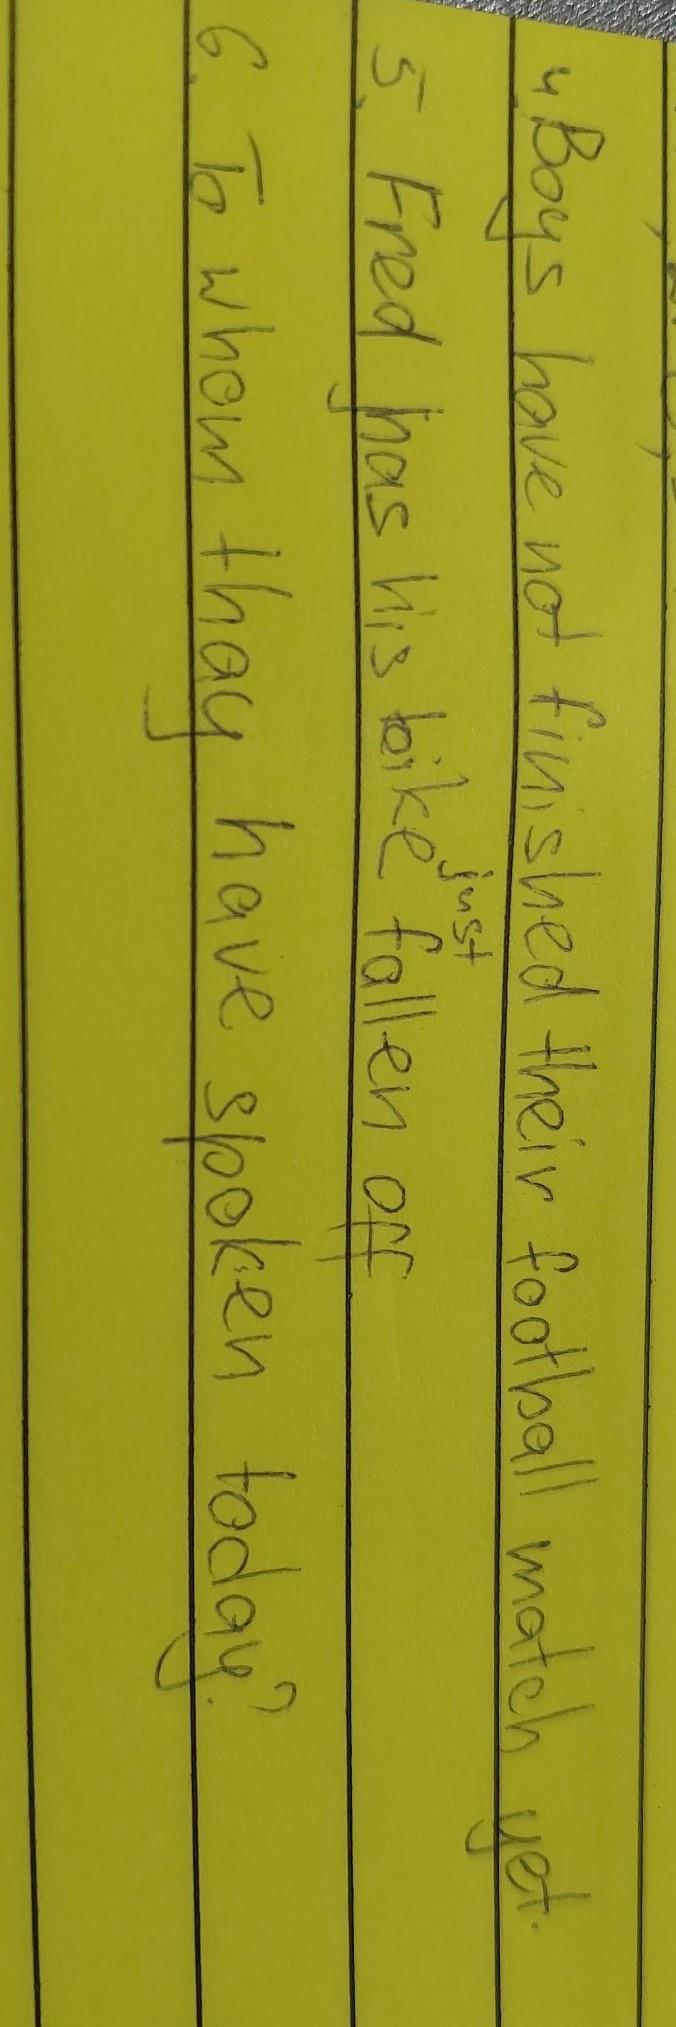 4. Boys have not finished their football match yet.
5. Fred has his bike just fallen off
6. To whom thay have spoken today?